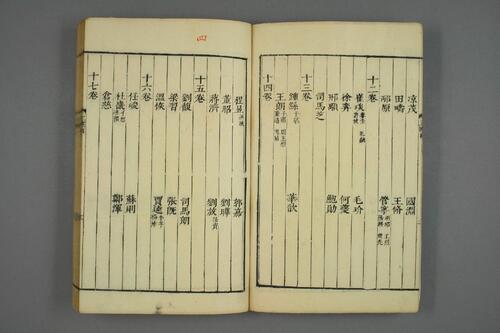 涼茂 國淵
田疇 王脩
邴原 管寧
十二卷
崔琰 毛玠
徐奕 何夔
邢顒 鮑勛
司馬芝
十三卷
鍾繇 子毓 華歆
王朗 子肅
十四卷
程昱 郭嘉
董昭 劉曄
蔣濟 劉放 孫資
十五卷
劉馥 司馬朗
梁習 張既
溫恢 賈逵
十六卷
任峻 蘇則
杜畿 子恕 鄭渾
倉慈
十七卷